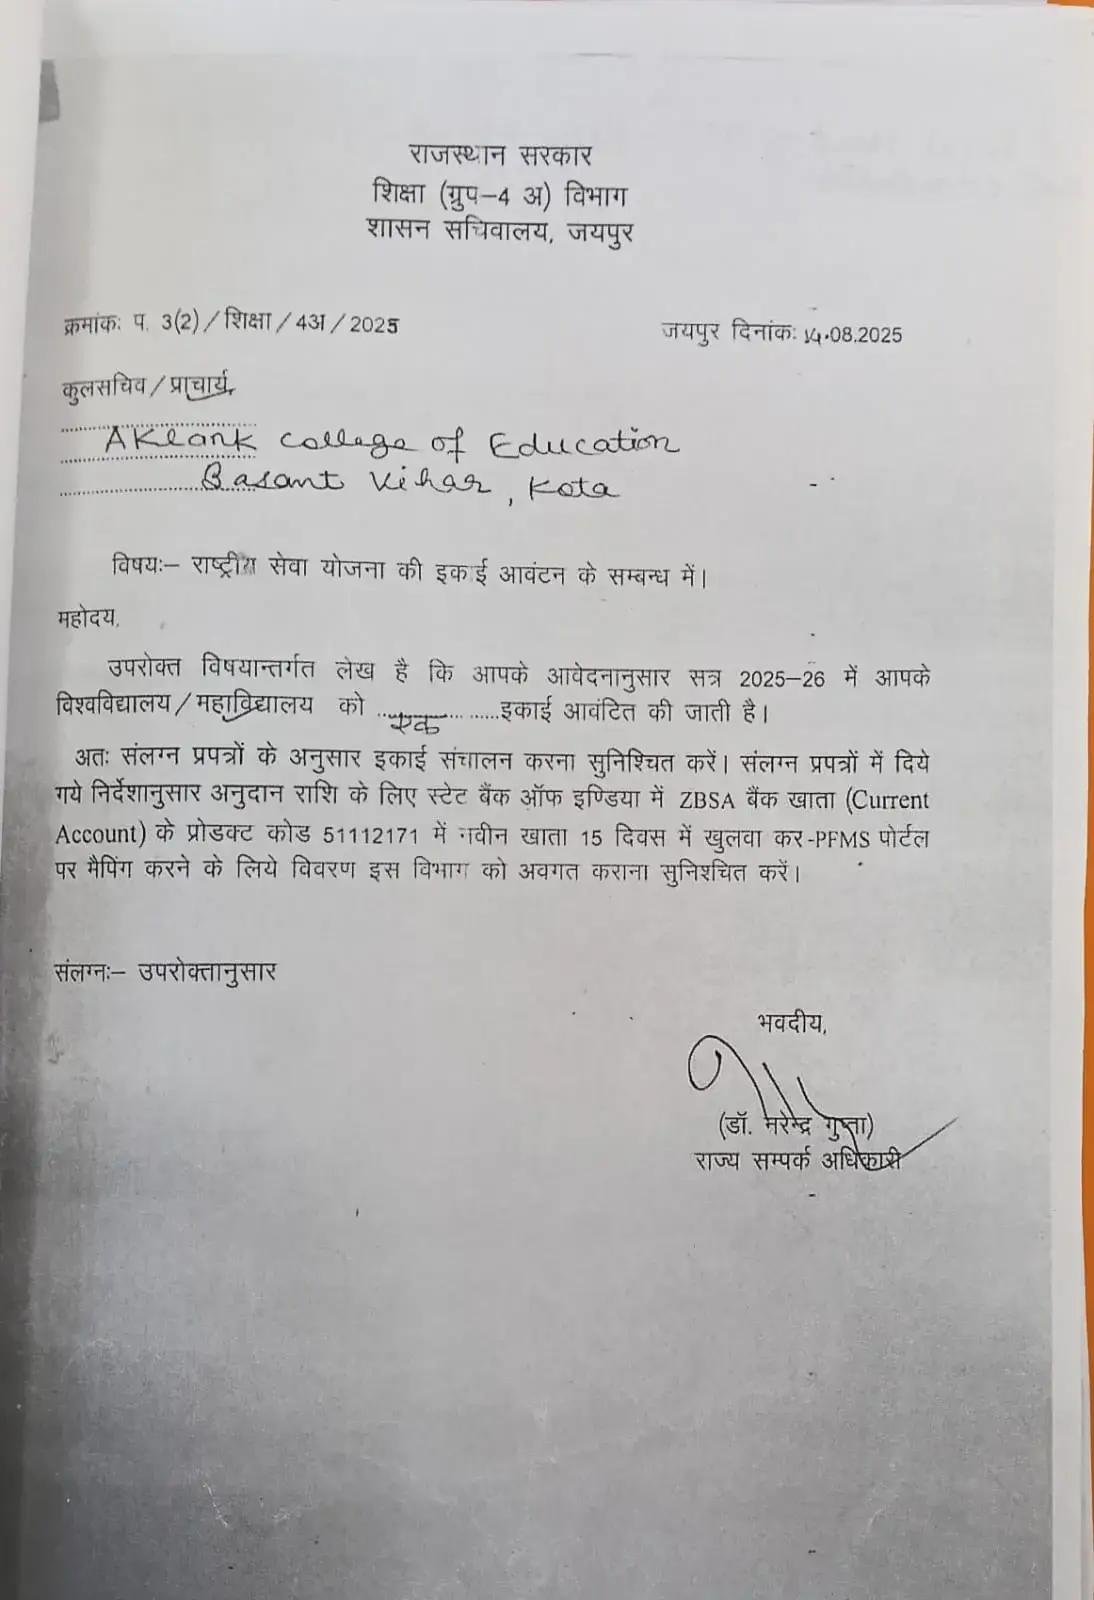 राजस्थान सरकार
शिक्षा (ग्रुप–4 अ) विभाग
शासन सचिवालय, जयपुर
क्रमांकः प. 3(2) / शिक्षा / 4अ / 2025
जयपुर दिनांकः 14.08.2025
कुलसचिव / प्राचार्य,
AKlank College of Education
Basant Vihar, Kota
विषयः– राष्ट्रीय सेवा योजना की इकाई आवंटन के सम्बन्ध में।
महोदय,
उपरोक्त विषयान्तर्गत लेख है कि आपके आवेदनानुसार सत्र 2025–26 में आपके
विश्वविद्यालय / महाविद्यालय को ......एक......इकाई आवंटित की जाती है।
अतः संलग्न प्रपत्रों के अनुसार इकाई संचालन करना सुनिश्चित करें। संलग्न प्रपत्रों में दिये
गये निर्देशानुसार अनुदान राशि के लिए स्टेट बैंक ऑफ इण्डिया में ZBSA बैंक खाता (Current
Account) के प्रोडक्ट कोड 51112171 में नवीन खाता 15 दिवस में खुलवा कर -PFMS पोर्टल
पर मैपिंग करने के लिये विवरण इस विभाग को अवगत कराना सुनिश्चित करें।
संलग्नः– उपरोक्तानुसार
भवदीय,
(डॉ. नरेन्द्र गुप्ता)
राज्य सम्पर्क अधिकारी